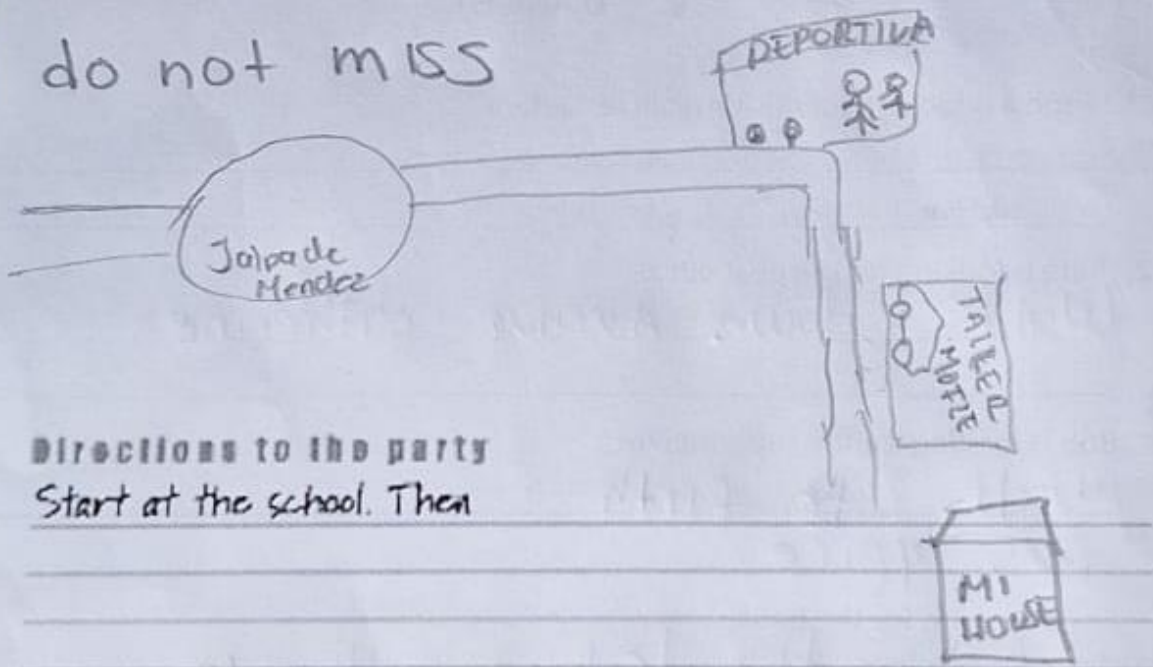 do not miss
DEPORTIVA
Jalpa de
Mendez
TALLER
MOFLE
Directions to the party
Start at the school. Then
MI
HOUSE